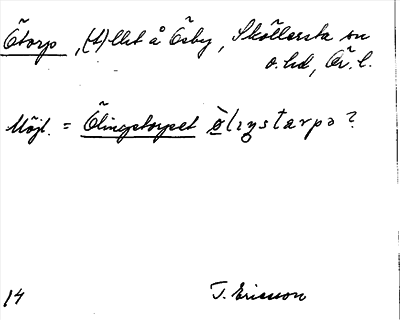 Ötorp, (t)llet å Ösby, Sköllersta sn
o. hd, Ör. l.
Möjl. = Ölingstorpet ò̱lıŋstarpə?
14 T. Ericsson